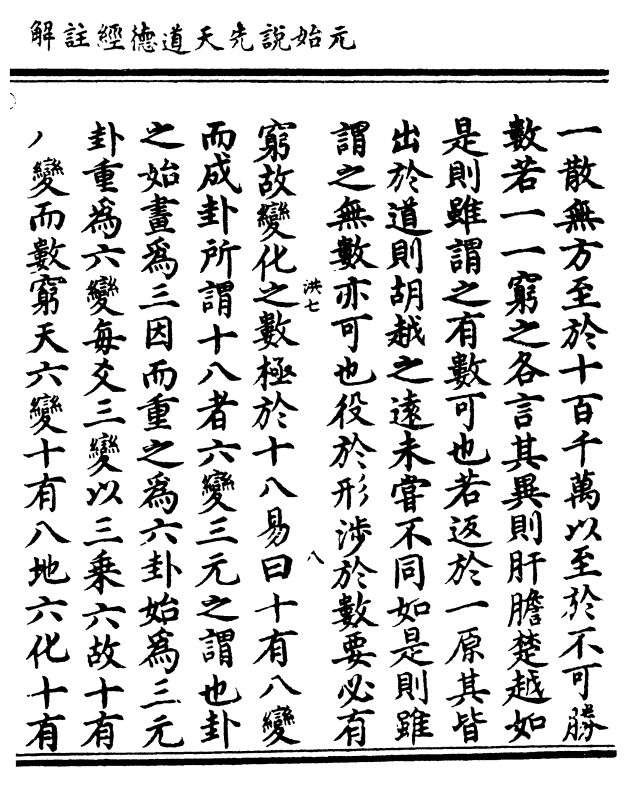 元始說先天道德經註解
一散無方至於十百千萬以至於不可勝
數若一一窮之各言其異則肝膽楚越如
是則雖謂之有數可也若返於一原其皆
出於道則胡越之遠未嘗不同如是則雖
謂之無數亦可也役於形涉於數要必有
洪七
八
窮故變化之數極於十八易曰十有八變
而成卦所謂十八者六變三元之謂也卦
之始畫爲三因而重之爲六卦始爲三元
卦重爲六變每爻三變以三乘六故十有
八變而數窮天六變十有八地六化十有